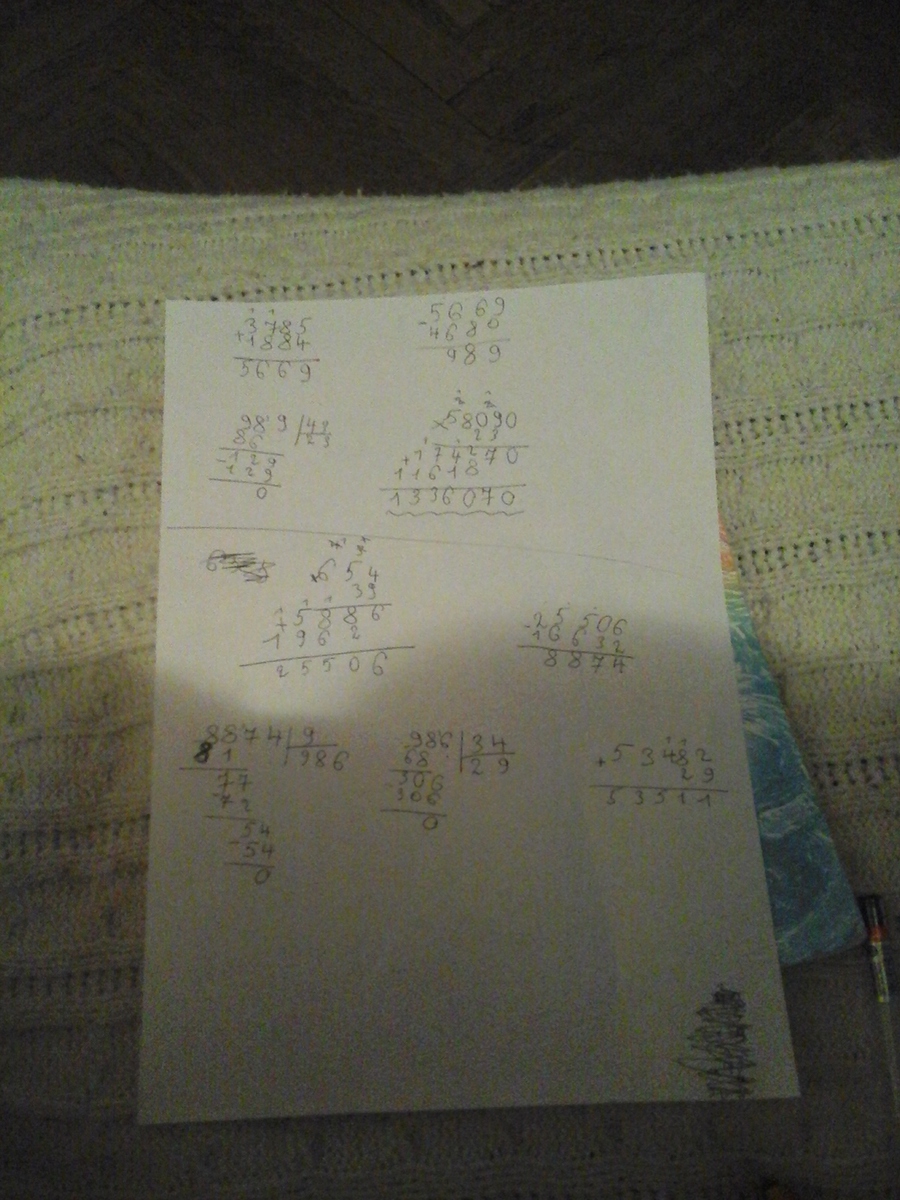 3785
+1884
5669
-5669
4680
989
989 | 43
86 | 23
-129
129
0
×58090
23
+174270
11618
1336070
×654
39
+5886
1962
25506
-25 506
16632
8874
8874 | 9
81 | 986
77
-72
-54
54
0
986 | 34
68 | 29
306
306
0
+53482
29
53511